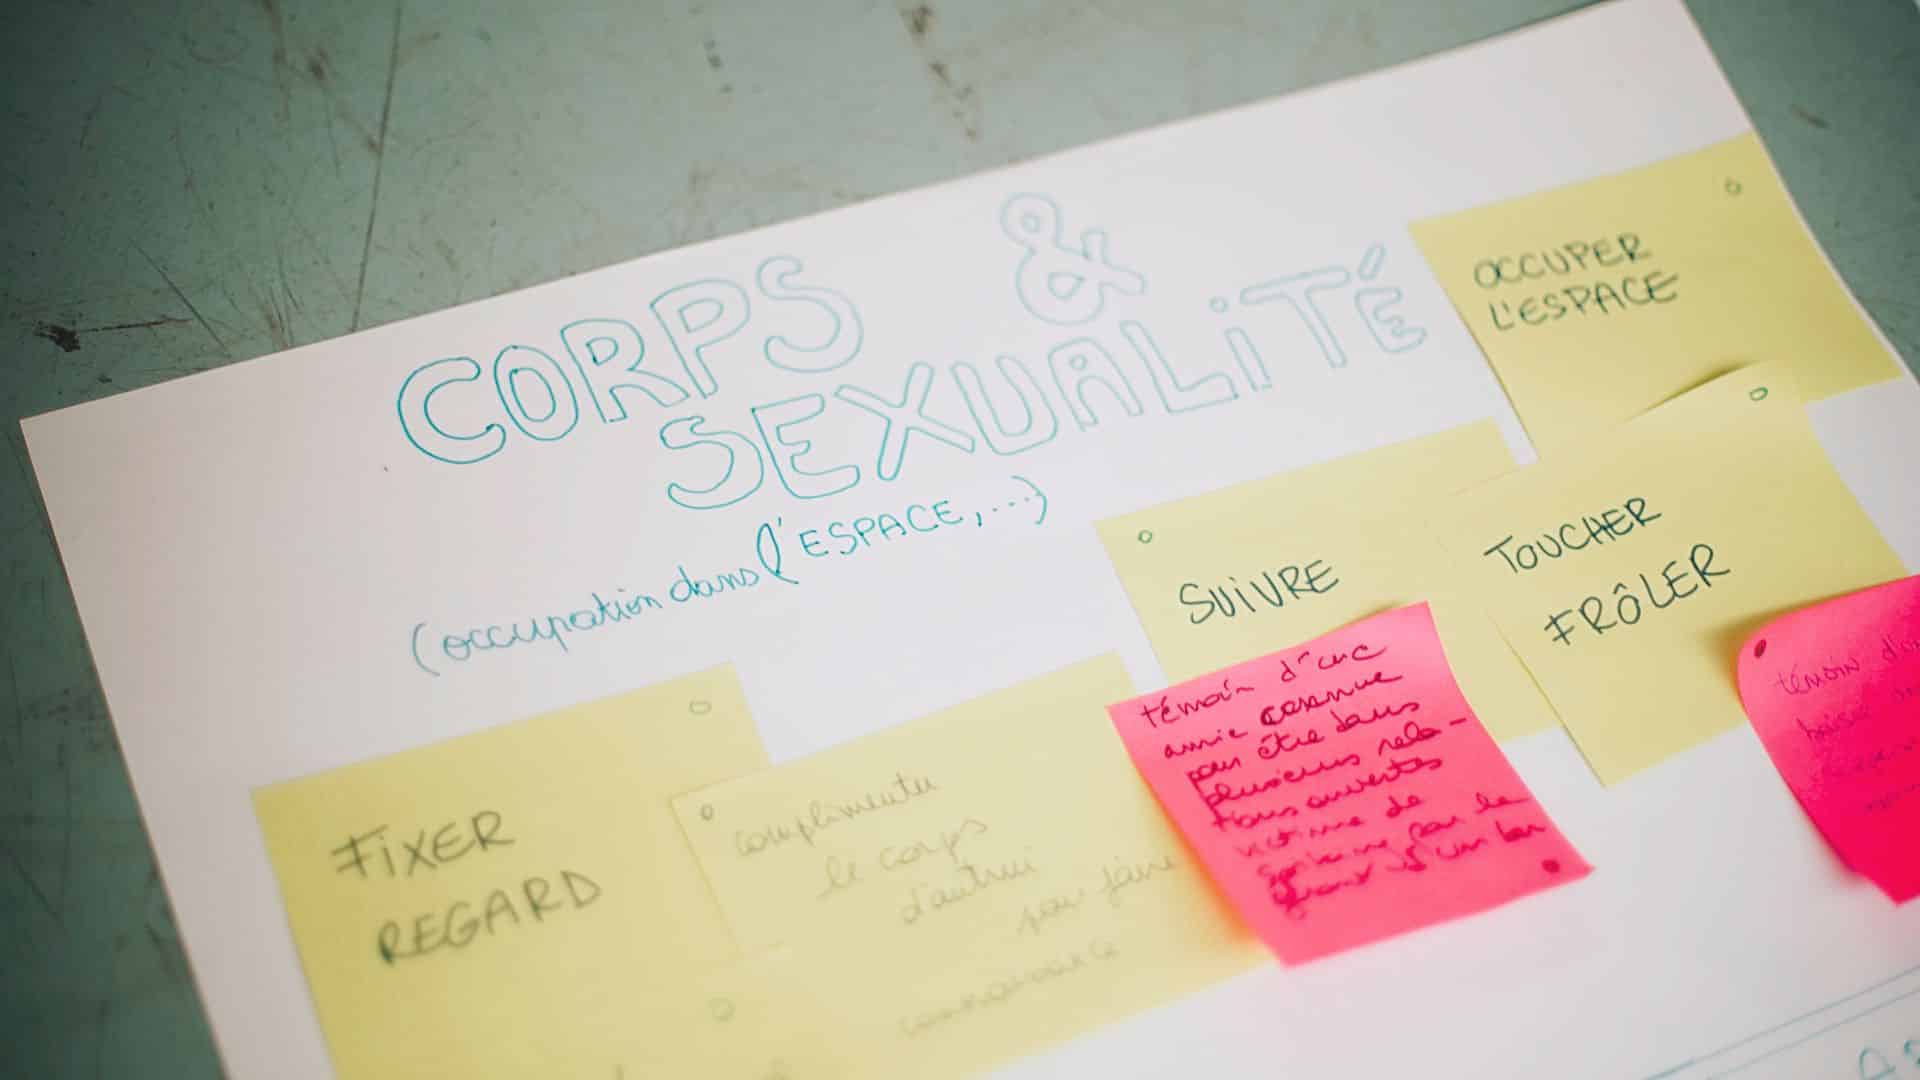 CORPS &
SEXUALITÉ
(occupation dans l'ESPACE,...)
OCCUPER
L'ESPACE
SUIVRE
TOUCHER
FRÔLER
FIXER
REGARD
complimenter
le corps
d'autrui
pour faire
connaissance
témoin d'une
amie connue
pour être dans
plusieurs rela-
tions ouvertes
victime de
par le
d'un bar
témoin